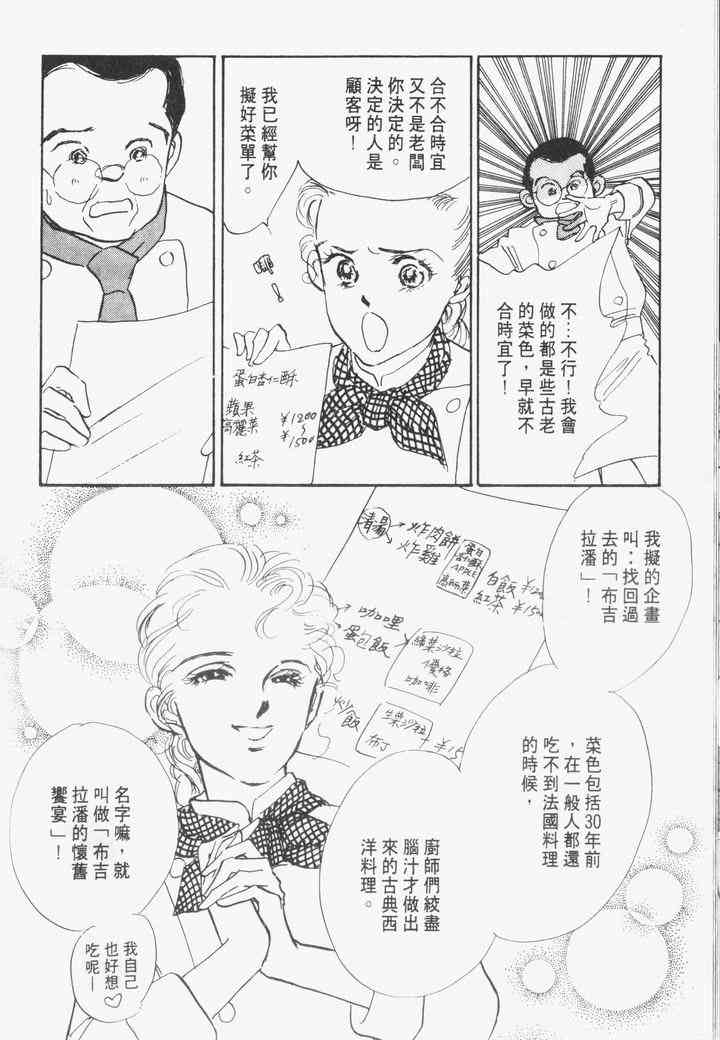 不…不行！我會
做的都是些古老
的菜色，早就不
合時宜了！
合不合時宜
又不是老闆
你決定的。
決定的人是
顧客呀！
我已經幫你
擬好菜單了。
蛋白杏仁酥
蘋果
高麗菜
￥1200
～
￥1500
紅茶
我擬的企畫
叫：找回過
去的「布吉
拉潘」！
菜色包括30年前
，在一般人都還
吃不到法國料理
的時候，
廚師們絞盡
腦汁才做出
來的古典西
洋料理。
名字嘛，就
叫做「布吉
拉潘的懷舊
饗宴」！
我自己
也好想
吃呢─♡
炸肉餅
炸雞
蛋白
APPLE
白飯
紅茶
咖哩
蛋包飯
咖啡
炒飯
生菜沙拉
布丁